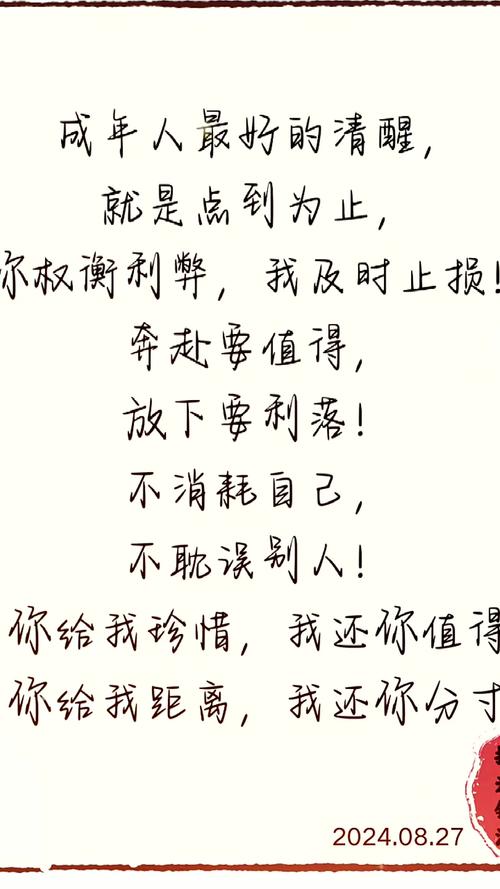 成年人最好的清醒，
就是点到为止，
你权衡利弊，我及时止损！
奔赴要值得，
放下要利落！
不消耗自己，
不耽误别人！
你给我珍惜，我还你值得
你给我距离，我还你分寸
2024.08.27